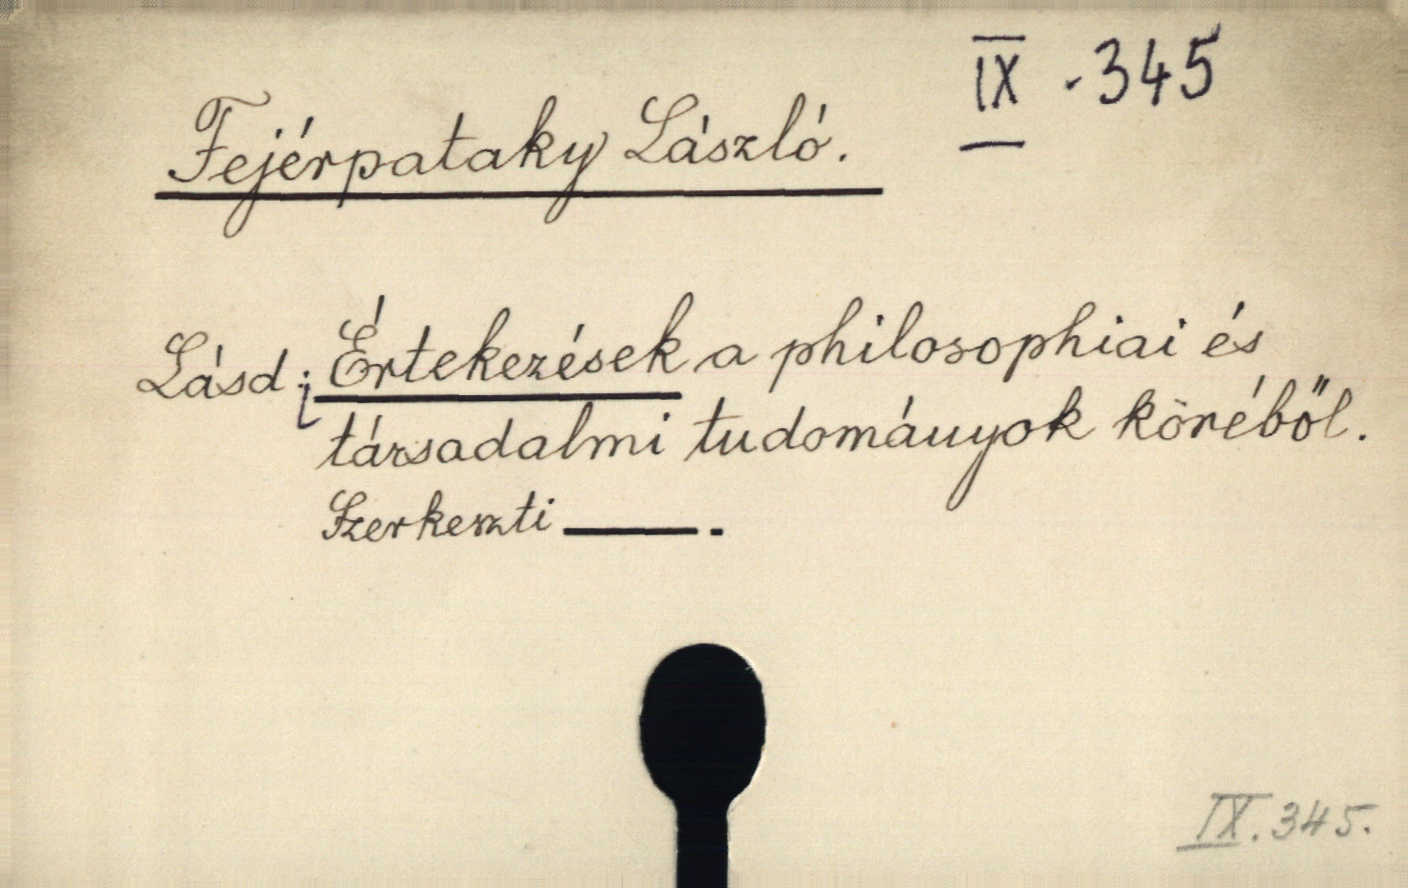 IX - 345
Fejérpataky László.
Lásd: Értekezések a philosophiai és
társadalmi tudományok köréből.
Szerkeszti ——.
IX. 345.